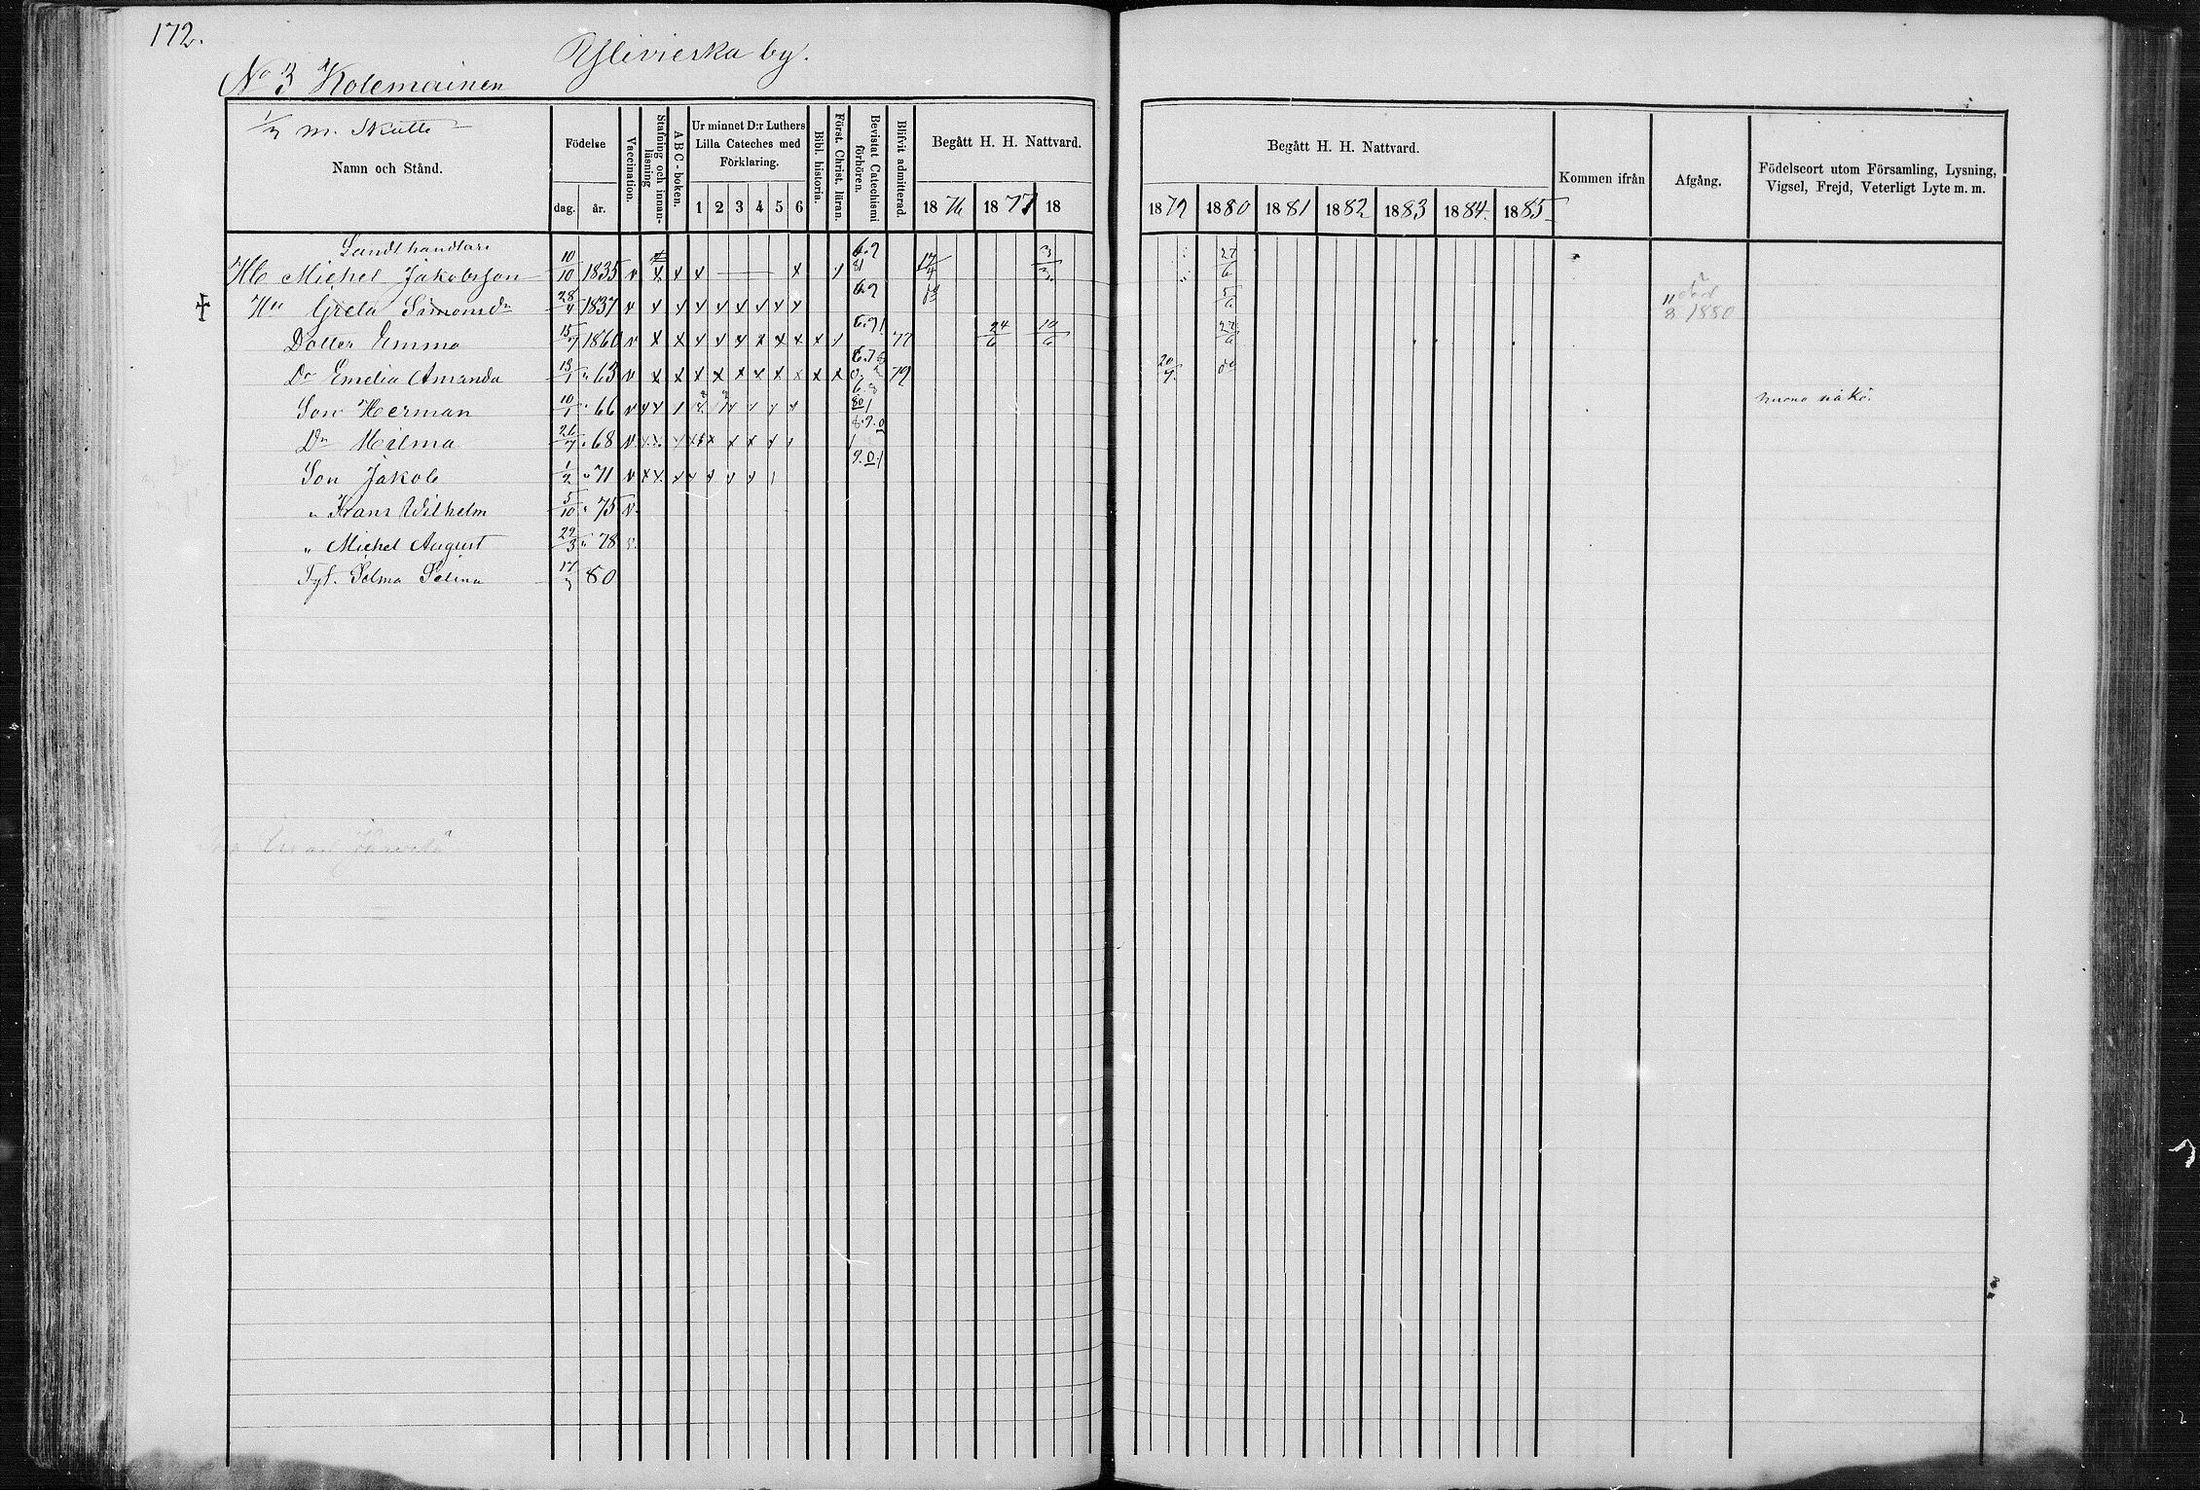 172.
Ylivieska by.
No 3 Kolemainen
1/3 m. Skatte
Namn och Stånd.
Födelse
dag. år.
Vaccination.
Stafning och innan-läsning
ABC-boken.
Ur minnet D:r Luthers Lilla Cateches med Förklaring.
1 2 3 4 5 6
Bibl. historia.
Först. Christ. läran.
Bevistat Catechismi förhören.
Blifvit admitterad.
Begått H. H. Nattvard.
1876 1877 18
Begått H. H. Nattvard.
1879 1880 1881 1882 1883 1884. 1885
Kommen ifrån
Afgång.
Födelseort utom Församling, Lysning, Vigsel, Frejd, Veterligt Lyte m. m.
Landthandlare
Hb Michel Jakobsson 10/10 1835 v x x x x 17/4 3/3 27/6
Hu Greta Simonsdr 28/4 1837 v x x x x x x x x 6.9 do 5/6 död 11/8 1880
Dotter Emma 15/7 1860 v x x x x x x x x x 77 24/6 10/6 27/6
Dr Emelia Amanda 13/1 " 63 v x x x x x x x x x x 79 20/7 do
Son Herman 10/1 " 66 v huono näkö.
Dr Hilma 26/7 " 68 v 8.9.0
Son Jakob 1/2 " 71 v 9.0.1
" Frans Wilhelm 5/10 " 75 v.
" Michel August 22/3 " 78
Selma Selina 80